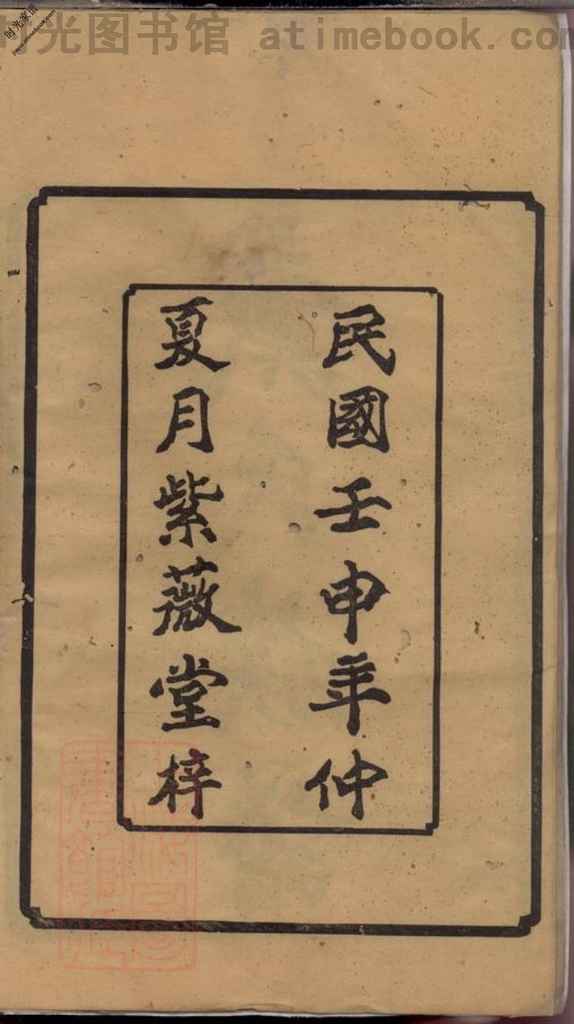 时光图书馆 atimebook.com
民國壬申年仲
夏月紫薇堂梓